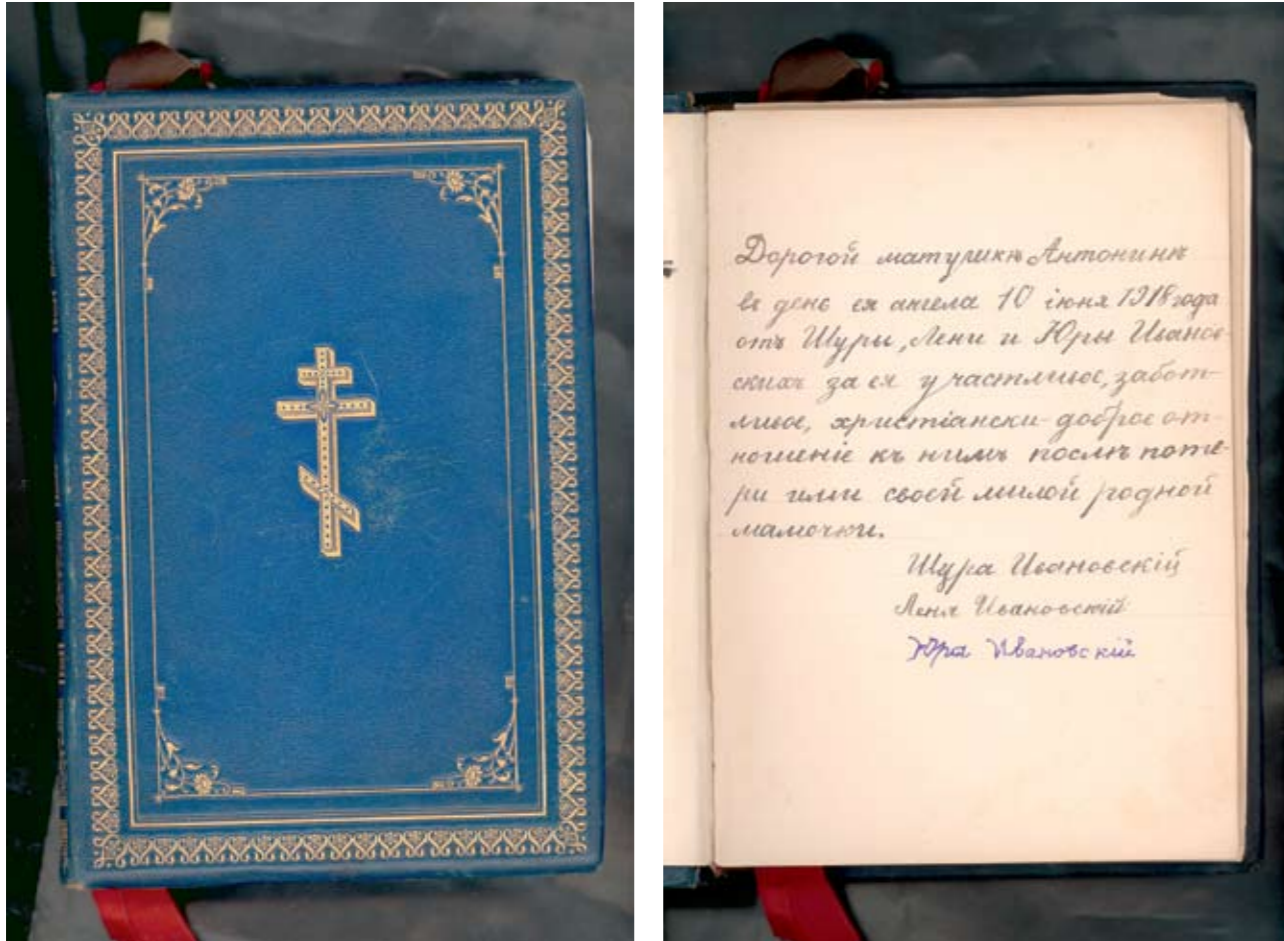 Дорогой матушкѣ Антонинѣ
въ день ея ангела 10 iюня 1918 года
отъ Шуры, Лени и Юры Иванов-
скихъ за ея участливое, забот-
ливое, христiански-доброе от-
ношенiе къ нимъ послѣ поте-
ри ими своей милой родной
мамочки.
Шура Ивановскiй
Леня Ивановскiй
Юра Ивановскiй